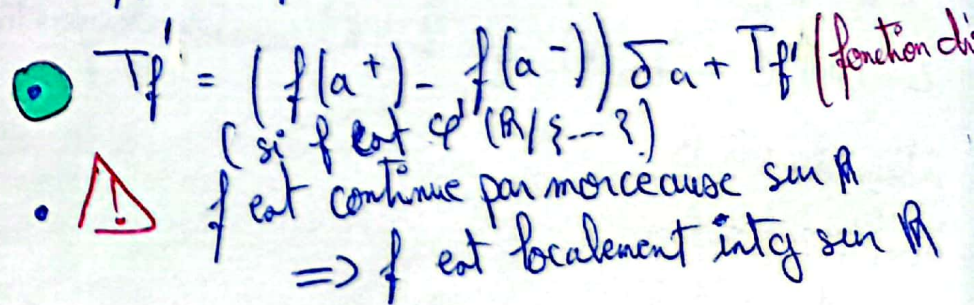 Tf' = (f(a⁺) - f(a⁻)) δa + Tf' (fonction di
(si f est φ' (R/{---})
f est continue par morceause sur R
=> f est localement intg sur R